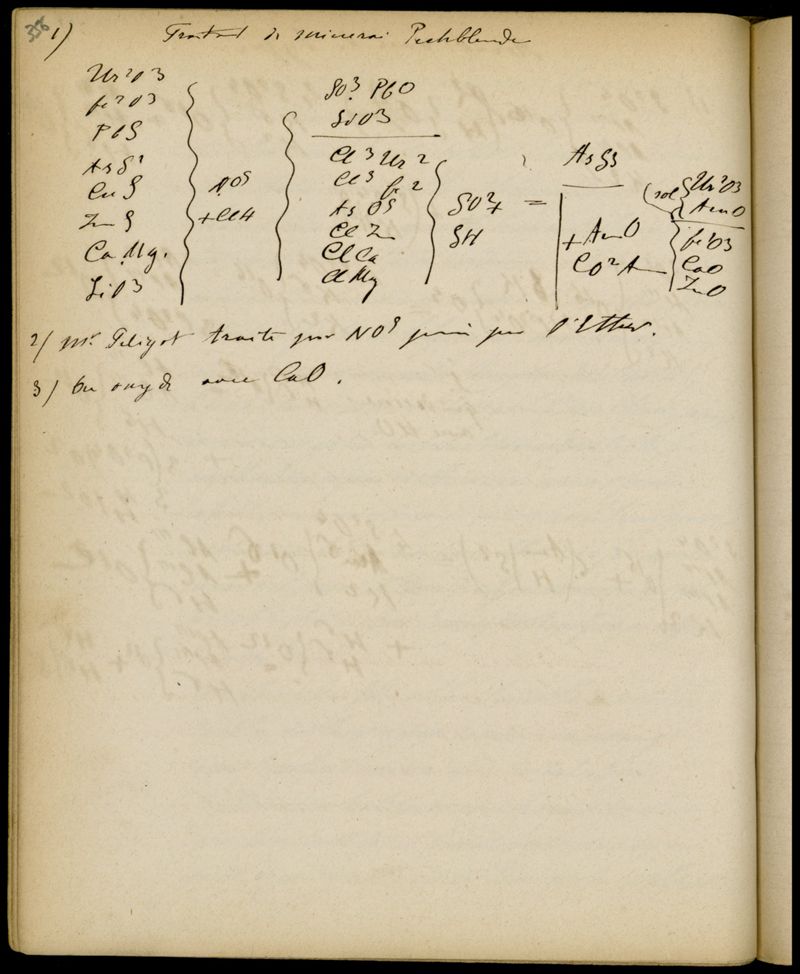 356
1) Traitmt de minerai Pechblende
Ur²O3
fe²O3
PbS
AsS²
CuS
ZnS
Ca Mg.
SiO3
NO5
+ClH
SO3 PbO
SiO3
Cl3Ur2
Cl3 fe2
AsO5
ClZn
ClCa
ClMg
SO2+
SH
=
AsS3
+AmO
CO²Am
sol
Ur²O3
AmO
fe²O3
CaO
ZnO
2) Mr. Peligot traite par NO5 puis par l'Ether.
3) Ou oxyde avec CaO.